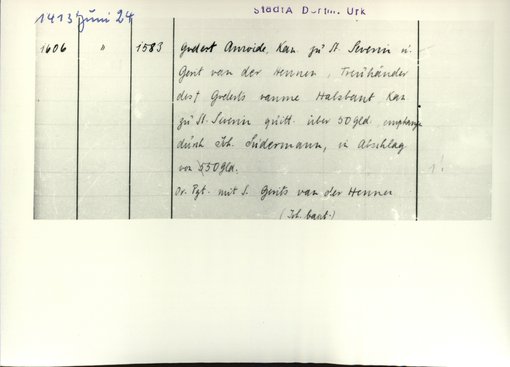 1413 Juni 24
StadtA Dortm. Urk
1606 " 1583 Gredert Anroide, Kan. zu St. Severin u.
Gent van der Hennen, Treuhänder
des † Grederts vamme Halsbant Kan.
zu St. Severin quitt. über 50 Gld. empfangen
durch Joh. Sudermann, in Abschlag
von 550 Gld.
Or. Pgt. mit S. Gents van der Hennen